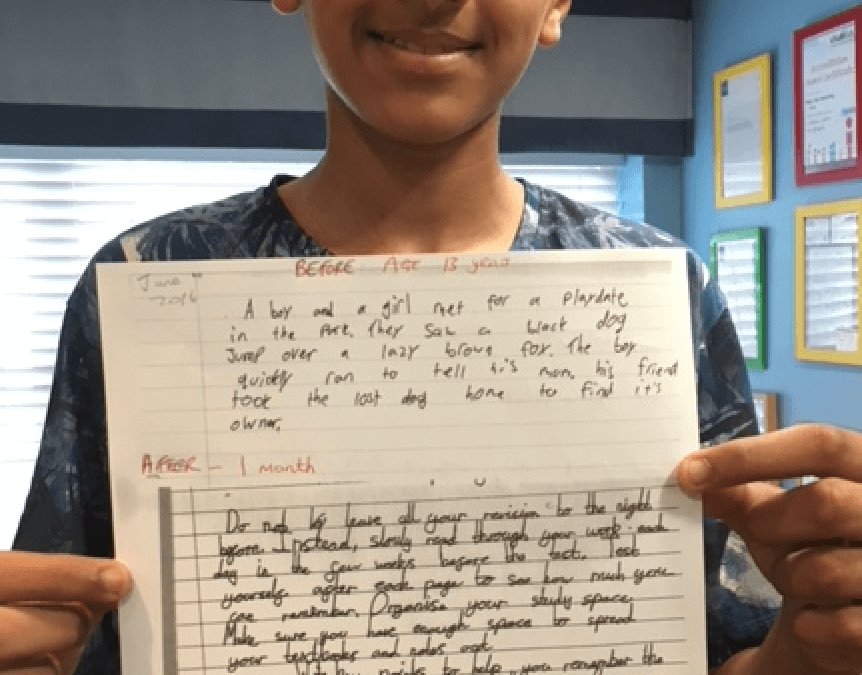 June
2016
BEFORE: AGE 13 years
A boy and a girl met for a playdate
in the Park. They Saw a black dog
Jump over a lazy brown fox. The boy
quickly ran to tell his mom, his friend
took the lost dog home to find it's
owner.
AFTER - 1 month
Do not leave all your revision to the night
before. Instead, slowly read through your work each
day in the few weeks before the test. Test
yourself after each page to see how much you
can remember. Organise your study space.
Make sure you have enough space to spread
your textbooks and notes out.
points to help you remember the